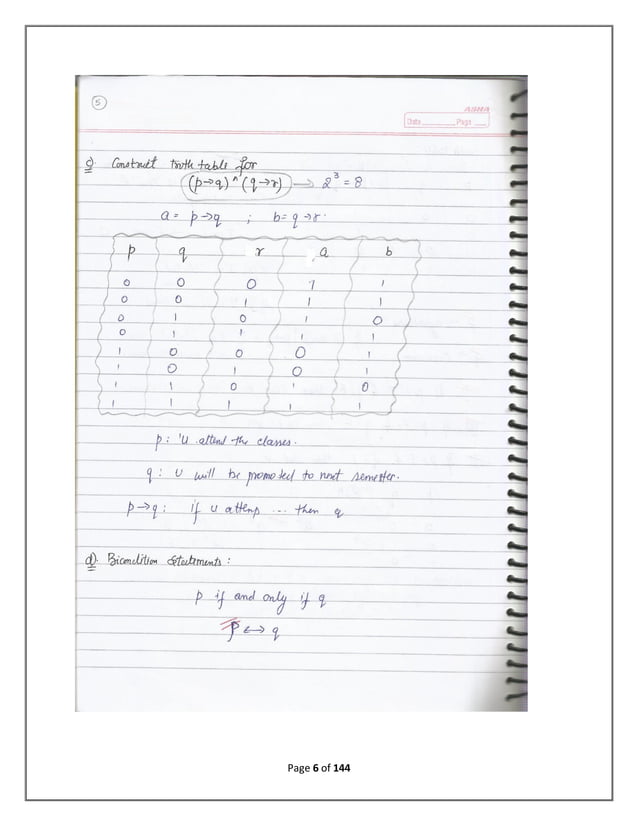 5
ASMA
Date Page
c) Construct truth table for
(p→q) ^ (q→r) → 2³ = 8
a = p→q ; b = q→r.
p q r a b
0 0 0 1 1
0 0 1 1 1
0 1 0 1 0
0 1 1 1 1
1 0 0 0 1
1 0 1 0 1
1 1 0 1 0
1 1 1 1 1
p : 'U attend the classes.
q : U will be promoted to next semester.
p→q : if u attenp ... then q
d). Bicondition Statements :
p if and only if q
p ↔ q
Page 6 of 144